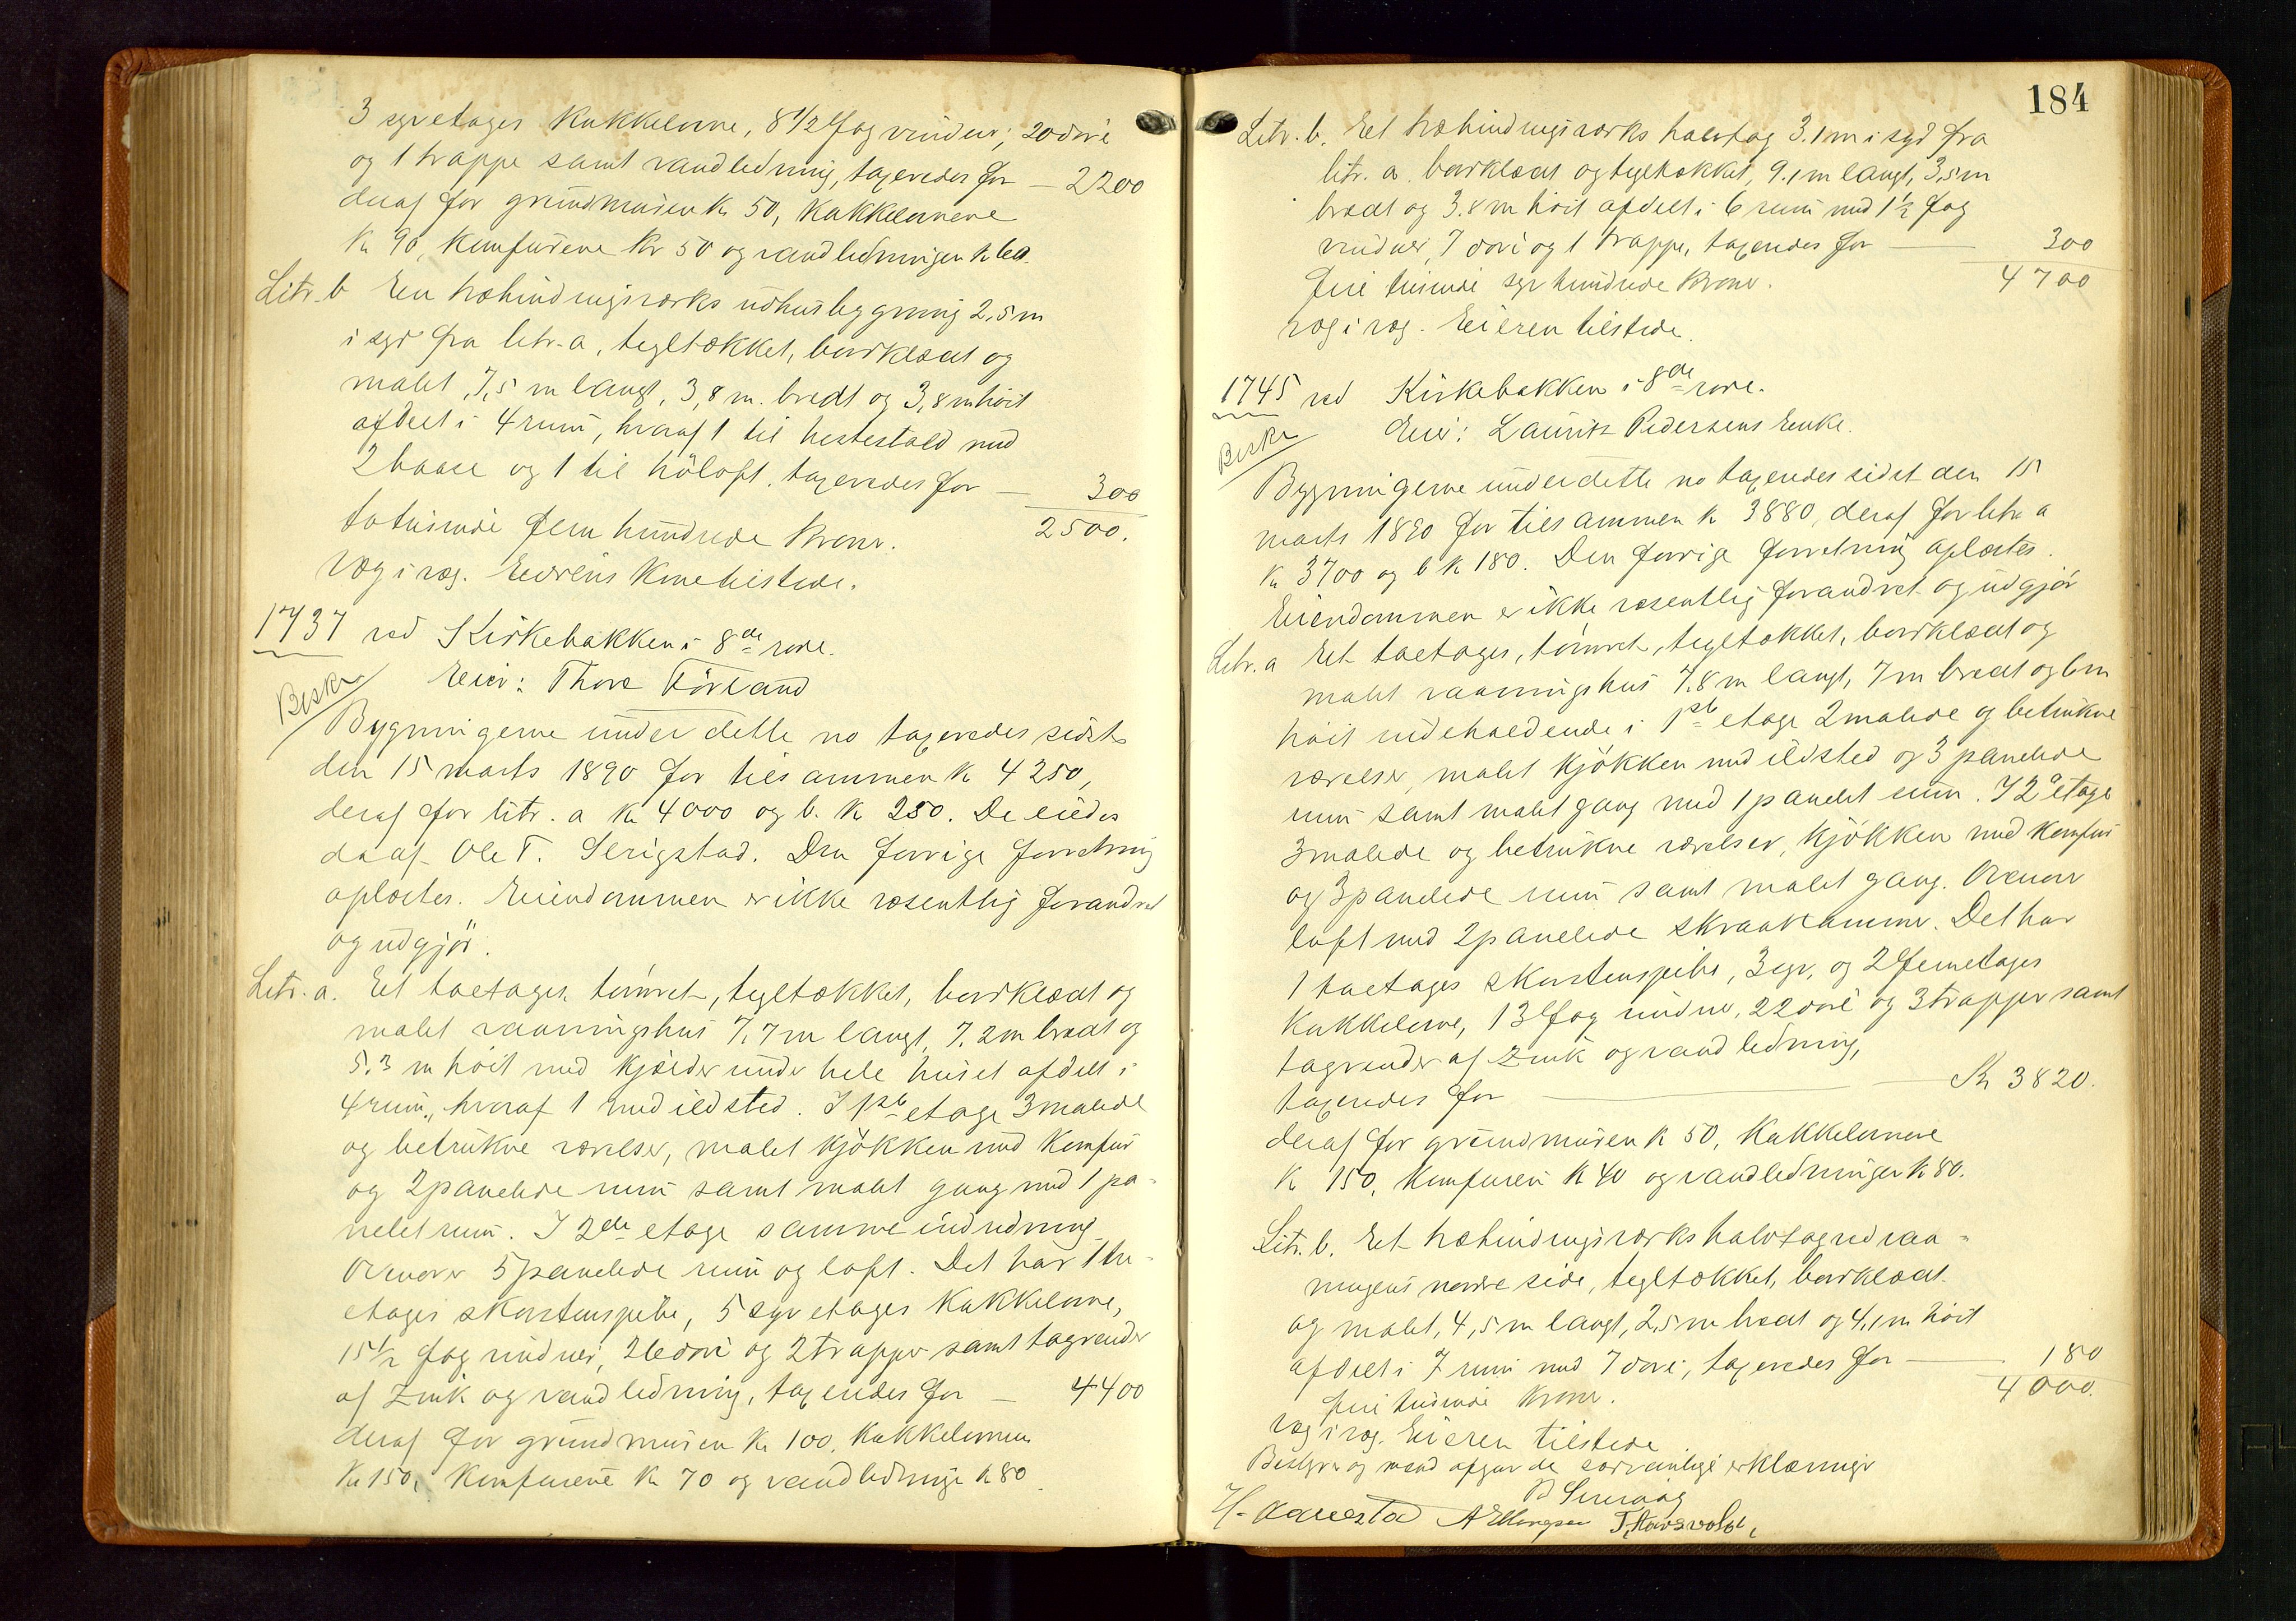 3 syvetages kakkelovne, 8 1/2 fag vinduer, 20 döre
og 1 trappe samt vandledning, taxeredes for — 2200
deraf for grundmuren kr 50, kakkelovnene
kr 90, komfurene kr 50 og vandledningen kr 60.
Litr. b En træbindingsværks udhusbygning 2,5 m
i syd fra litr. a, tegltækket, bordklædt og
malet, 7,5 m langt, 3,8 m. bredt og 3,8 m höit
afdelt i 4 rum, hvoraf 1 til hestestald med
2 baase og 1 til höloft, taxeredes for — 300
totusinde fem hundrede kroner. 2500.
Væg i væg. Eierens kone tilstede.
1737 ved Kirkebakken i 8de rode.
Beskr Eier: Thore Törland
Bygningerne under dette no taxeredes sidst
den 15 marts 1890 for tilsammen kr 4250,
deraf for litr. a kr 4000 og b. kr 250. De eiedes
da af Ole T. Serigstad. Den forrige forretning
oplæstes. Eiendommen er ikke væsentlig forandret
og udgjör.
Litr. a. Et toetages, tömret, tegltækket, bordklædt og
malet vaaningshus 7,7 m langt, 7,2 m bredt og
5,3 m höit med kjælder under hele huset afdelt i
4 rum, hvoraf 1 med ildsted. I 1ste etage 3 malede
og betrukne værelser, malet kjökken med komfur
og 2 panelede rum samt malet gang med 1 pa-
nelet rum. I 2den etage samme indredning
Ovenover 5 panelede rum og loft. Det har 1 to-
etages skorstenspibe, 5 syv etages kakkelovne,
15 1/2 fag vinduer, 26 döre og 2 trapper samt tagrender
af zink og vandledning, taxeredes for — 4400
deraf for grundmuren kr 100, kakkelovnene
kr 150, komfurene kr 70 og vandledninge kr 80.
184
Litr. b. Et træbindingsværks halvtag 3.1 m i syd fra
litr. a. bordklædt og tegltækket, 9.1 m langt, 3,5 m
bredt og 3.8 m höit afdelt i 6 rum med 1 1/2 fag
vinduer, 7 döre og 1 trappe, taxeredes for — 300
fire tusinde syv hundrede kroner. 4700
væg i væg. Eieren tilstede.
1745 ved Kirkebakken i 8de rode.
Beskr Eier: Lauritz Pedersens Enke.
Bygningerne under dette no taxeredes sidst den 15
marts 1890 for tilsammen kr 3880, deraf for litr a
kr 3700 og b kr 180. Den forrige forretning oplæstes.
Eiendommen er ikke væsentlig forandret og udgjör
Litr. a Et toetages, tömret, tegltækket, bordklædt og
malet vaaningshus 7,8 m langt, 7 m bredt og 6 m
höit indeholdende i 1ste etage 2 malede og betrukne
værelser, malet kjökken med ildsted og 3 panelede
rum samt malet gang med 1 panelet rum. I 2 etage
3 malede og betrukne værelser, kjökken med komfur
og 3 panelede rum samt malet gang. Ovenover
loft med 2 panelede skraakammer. Det har
1 toetages skorstenspibe, 3 syv, og 2 femetages
kakkelovne, 13 fag vinduer, 22 döre og 3 trapper samt
tagrender af zink og vandledning,
taxeredes for — Kr 3820.
deraf for grundmuren kr 50, kakkelovnene
kr 150, komfuren kr 40 og vandledningen kr 80.
Litr. b. Et træbindingsværks halvtag ved vaa-
ningens nordre side, tegltækket, bordklædt
og malet, 4,5 m langt, 2,5 m bredt og 4,1 m höit
afdelt i 7 rum med 7 döre, taxeredes for — 180
fire tusinde kroner. 4000.
væg i væg. Eieren tilstede
Bestyrer og mænd afgav de sædvanlige erklæringer